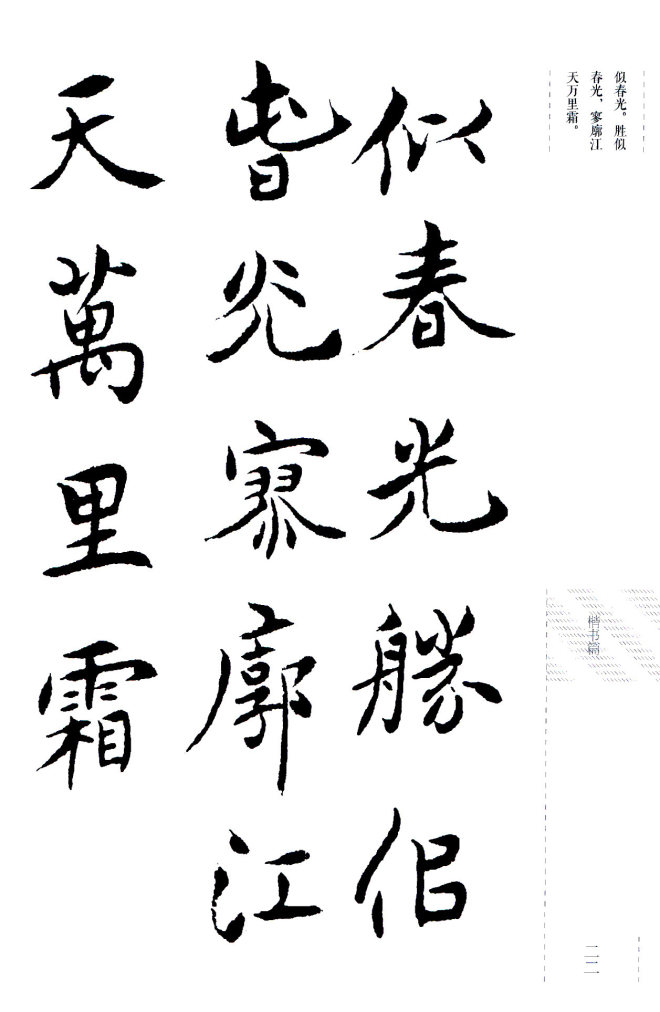 似春光。胜似
春光，寥廓江
天万里霜。
似春光勝侣
旾光寥廓江
天萬里霜
楷书篇
二二